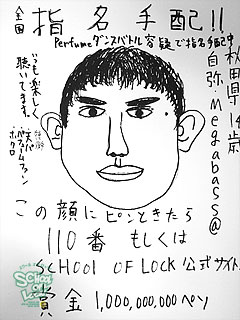 全国
指名手配!!
Perfumeダンスバトル容疑で指名手配中
秋田県14歳
自称・Megabass@
いつも楽しく
聴いてます。
特徴
天パ
パフュームファン
ホクロ
この顔にピンときたら
110番 もしくは
SCHOOL OF LOCK公式サイト
賞金 1,000,000,000ペソ
SCHOOL OF LOCK!